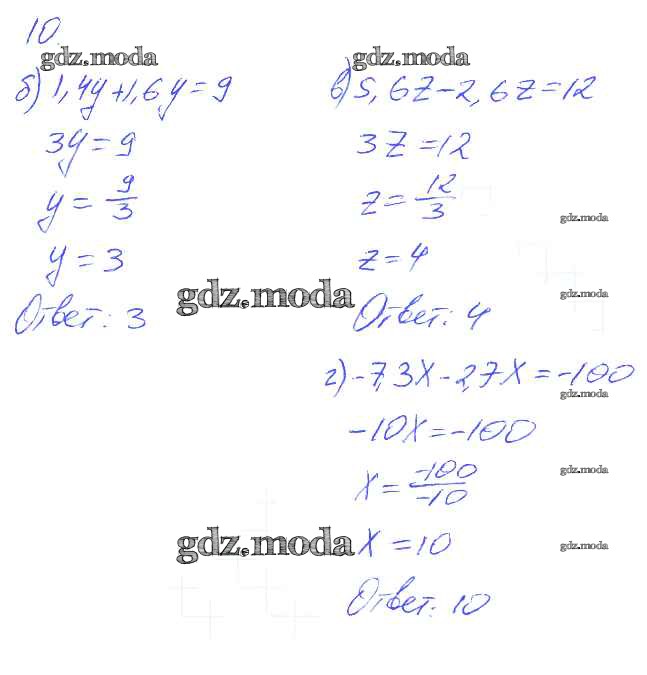 10.
gdz.moda
gdz.moda
б) 1,4y+1,6y=9
3y=9
y=9/3
y=3
Ответ: 3
в) 5,6z-2,6z=12
3z=12
z=12/3
gdz.moda
z=4
gdz.moda
gdz.moda
Ответ: 4
г) -7,3x-2,7x=-100
gdz.moda
-10x=-100
x=-100/-10
gdz.moda
gdz.moda
x=10
gdz.moda
Ответ: 10